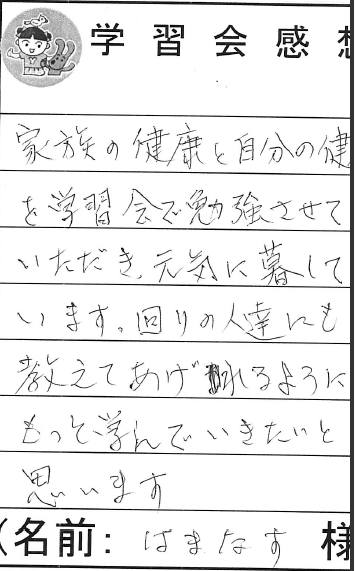 学習会感想
家族の健康と自分の健
を学習会で勉強させて
いただき、元気に暮して
います。回りの人達にも
教えてあげれるように
もっと学んでいきたいと
思います
(名前: はまなす 様